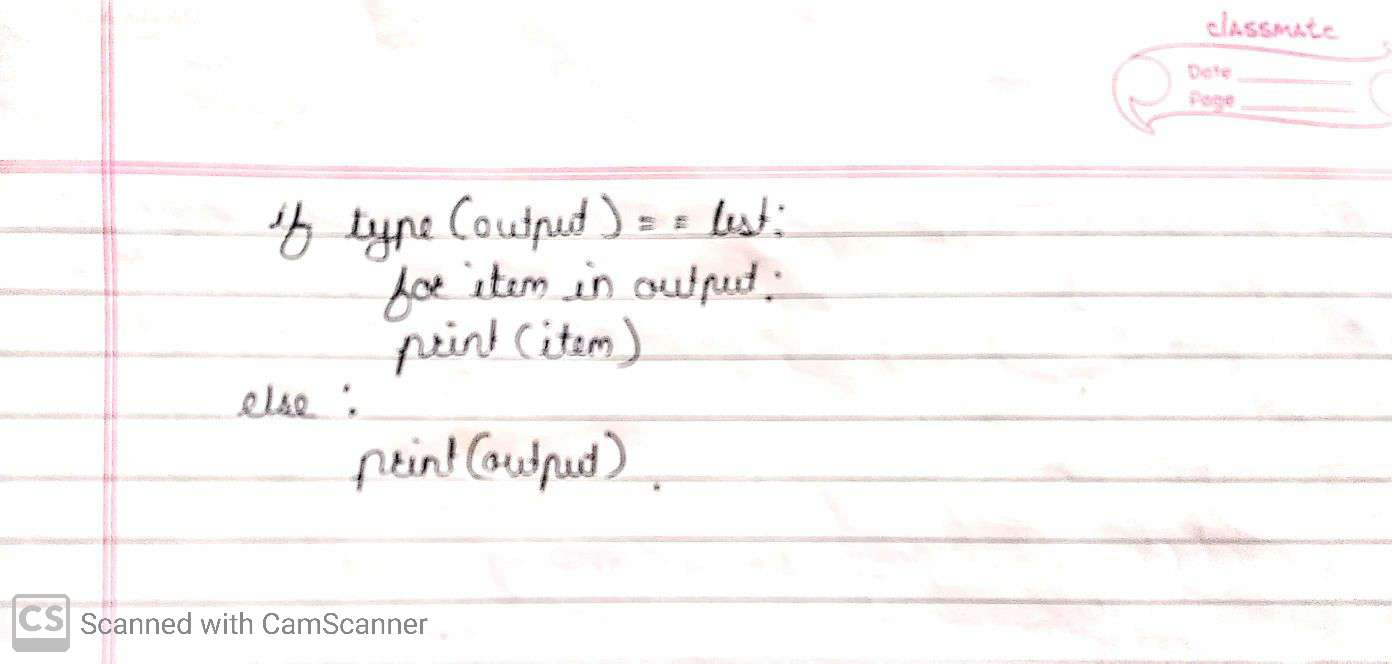 classmate
Date
Page
if type (output) == list:
for item in output:
print (item)
else :
print (output).
CS Scanned with CamScanner